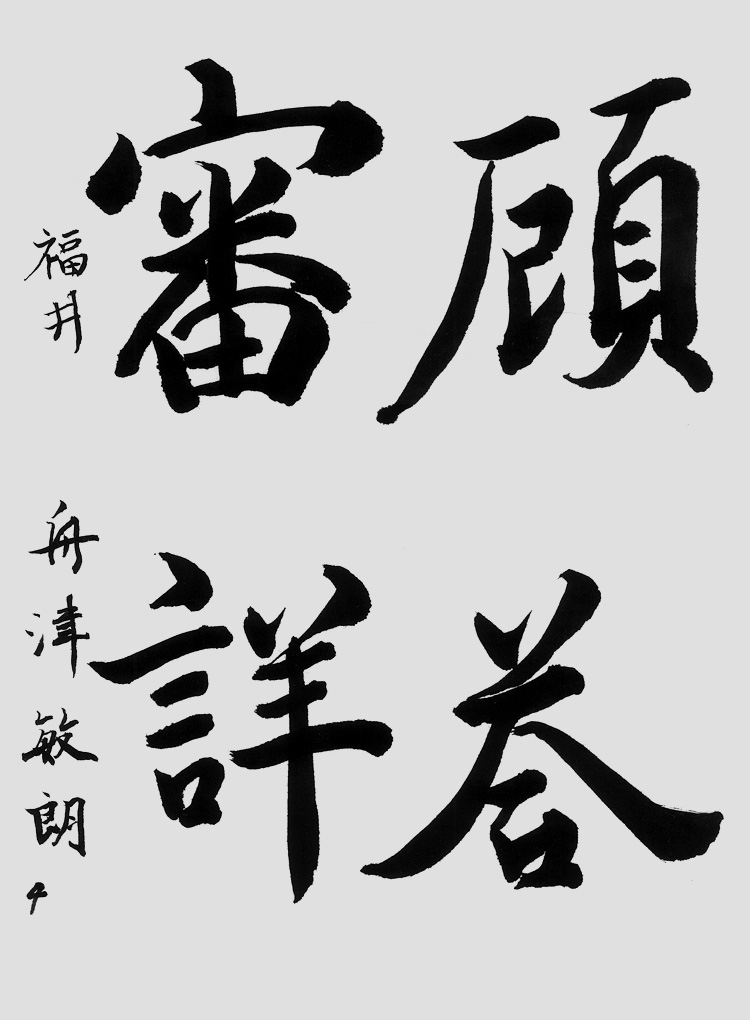 顧答
審詳
福井 舟津敏朗